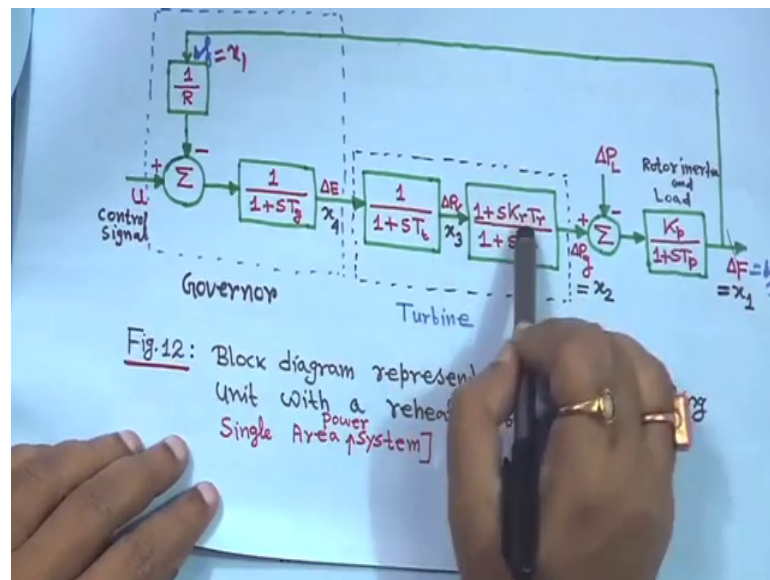 = x₁
1
R
+
−
Σ
u
control
signal
1
1+ST_g
ΔE
x₄
1
1+ST_t
ΔP_r
x₃
1+SK_rT_r
1+S
+
ΔP_g
= x₂
ΔP_L
−
Σ
Rotor inertia
and
Load
K_p
1+ST_p
ΔF =
= x₁
Governor
Turbine
Fig.12: Block diagram represent
Unit with a rehea
Single Area Power System]